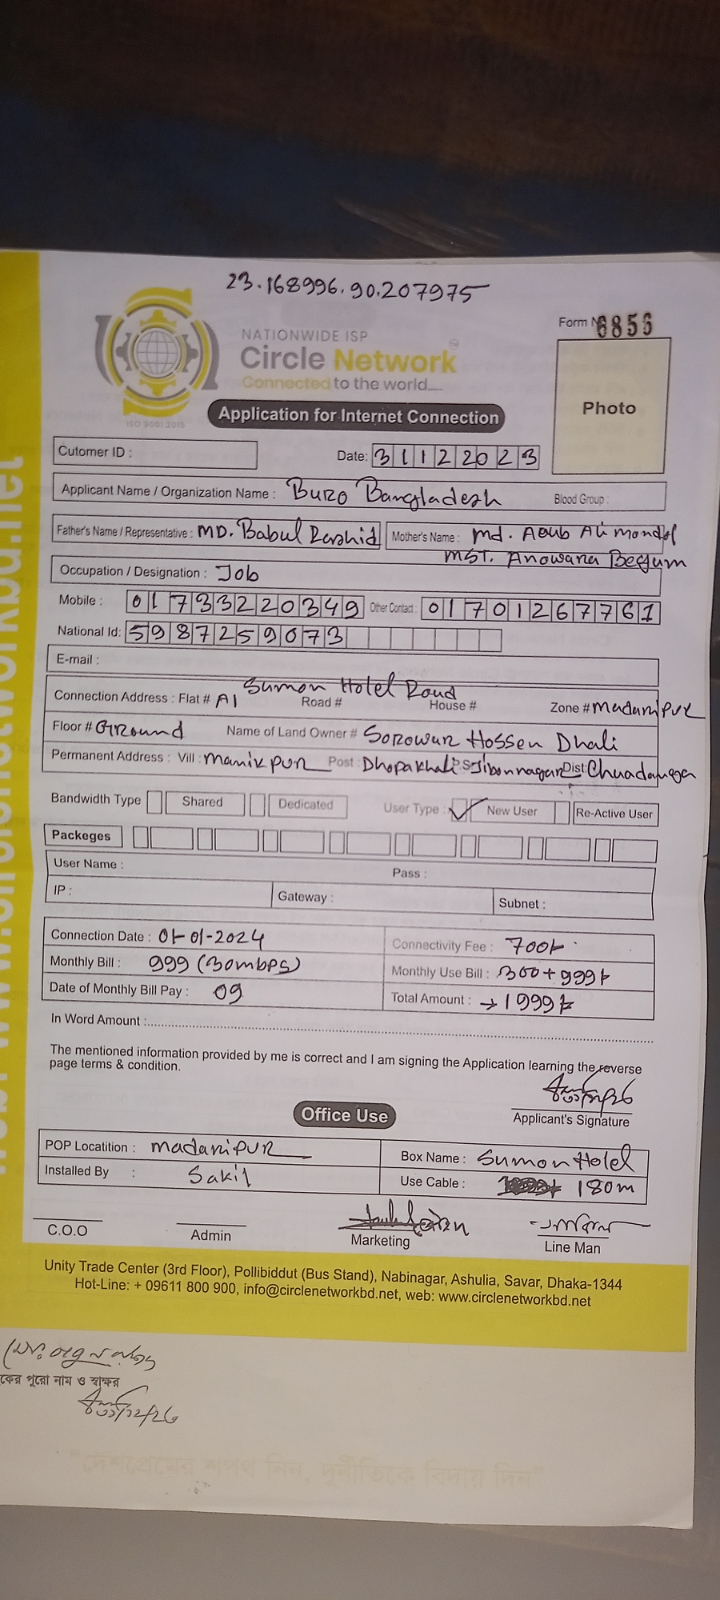 23.168996.90.207975
Form N 6856
NATIONWIDE ISP
Circle Network
Connected to the world....
ISO 9001:2015
Application for Internet Connection
Photo
Cutomer ID :
Date: 31122023
Applicant Name / Organization Name : Buro Bangladesh Blood Group :
Father's Name / Representative : MD. Babul Rashid Mother's Name : Md. Aoub Ali mondol
MST. Anowara Begum
Occupation / Designation : Job
Mobile : 01733220349 Other Contact : 01701267761
National Id: 5987259073
E-mail :
Sumon Hotel Road
Connection Address : Flat # A1 Road # House # Zone # madaripur
Floor # Ground Name of Land Owner # Sorowar Hossen Dhali
Permanent Address : Vill : Manikpur Post : Dhopakhali P.S Jibonnagar Dist: Chuadanga
Bandwidth Type Shared Dedicated User Type : New User Re-Active User
Packeges
User Name : Pass :
IP : Gateway : Subnet :
Connection Date : 01-01-2024 Connectivity Fee : 700/-
Monthly Bill : 999 (30mbps) Monthly Use Bill : 300+999/-
Date of Monthly Bill Pay : 09 Total Amount : → 1999/-
In Word Amount :
The mentioned information provided by me is correct and I am signing the Application learning the reverse
page terms & condition.
Applicant's Signature
Office Use
POP Locatition : Madaripur Box Name : Sumon Hotel
Installed By : Sakil Use Cable : 180m
C.O.O Admin Marketing Line Man
Unity Trade Center (3rd Floor), Pollibiddut (Bus Stand), Nabinagar, Ashulia, Savar, Dhaka-1344
Hot-Line: + 09611 800 900, info@circlenetworkbd.net, web: www.circlenetworkbd.net
কের পুরো নাম ও স্বাক্ষর
"দেশপ্রেমের শপথ নিন, দুর্নীতিকে বিদায় দিন"